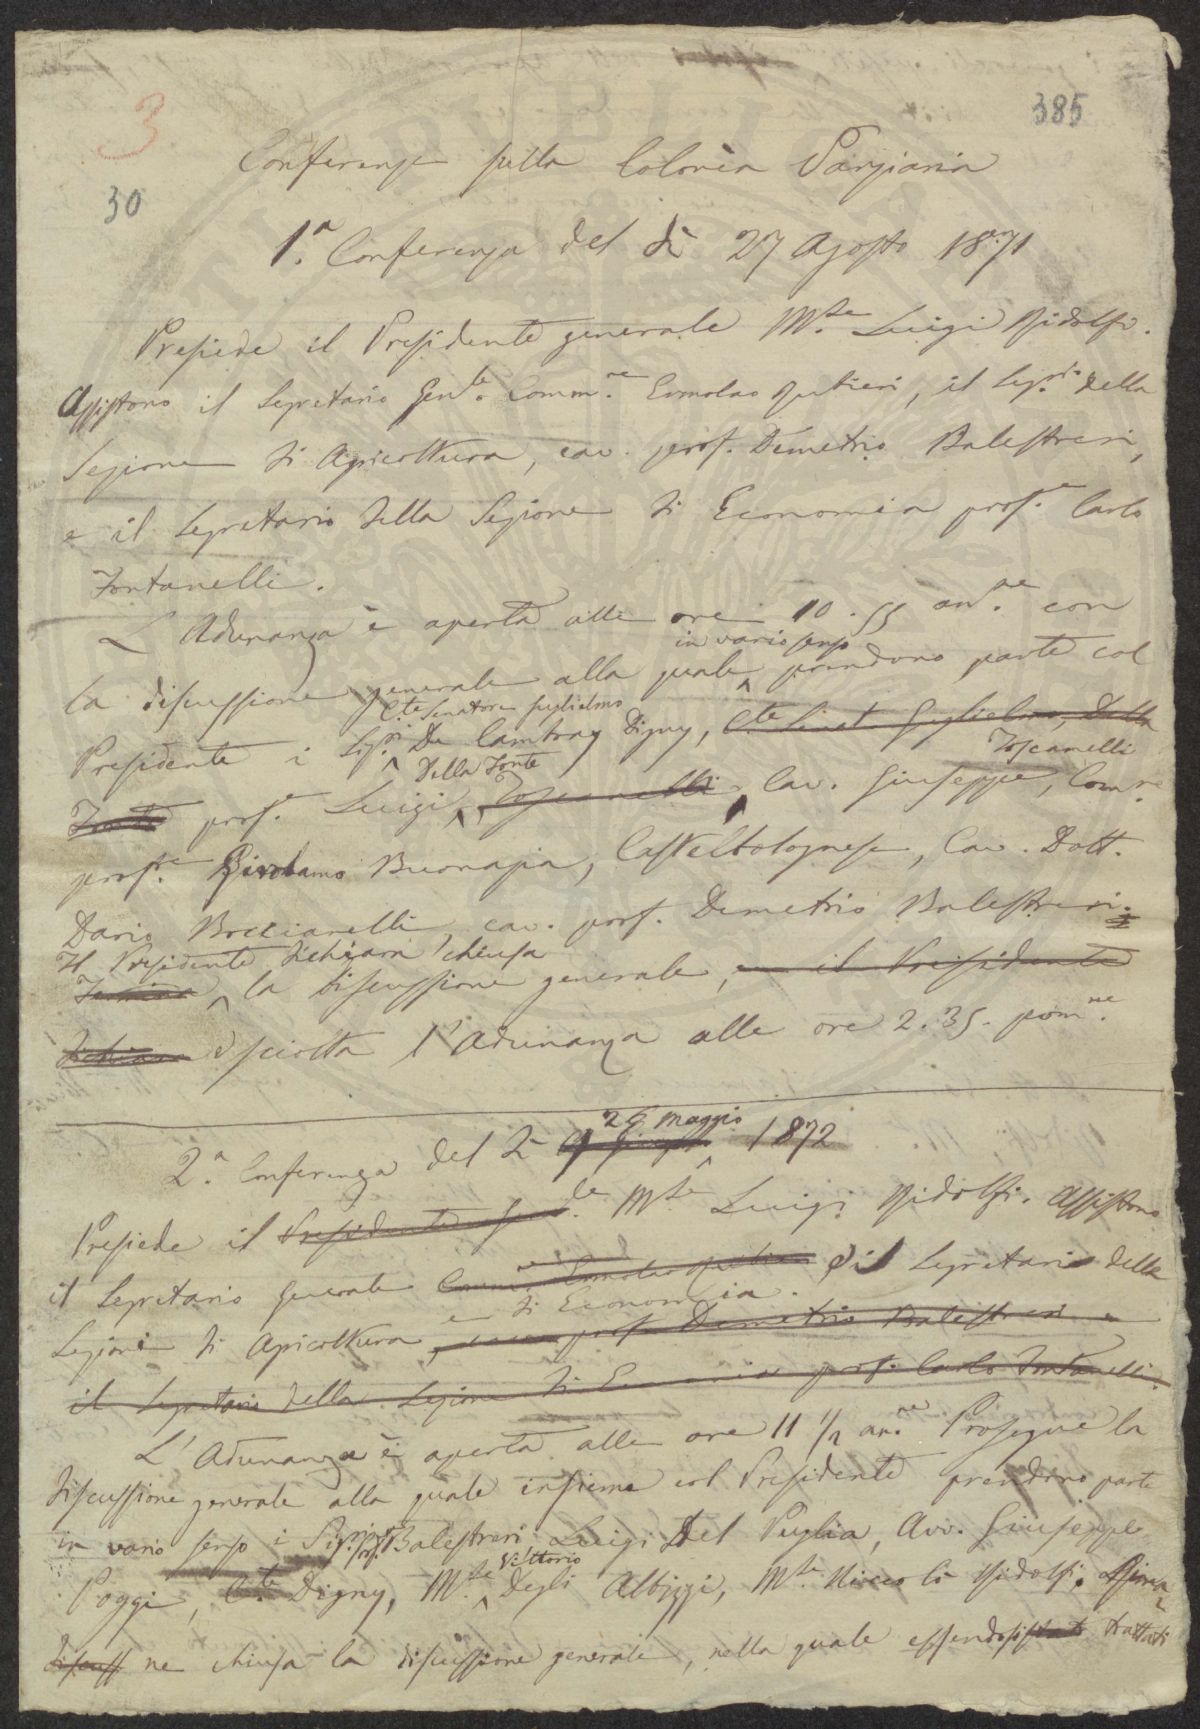 385
3
30
Conferenze sulla Colonia Parziaria
1.a Conferenza del dì 27 Agosto 1871
Presiede il Presidente generale M.se Luigi Ridolfi.
Assistono il Segretario Gen.le Comm.re Ermolao Rubieri, il Seg.rio della
Sezione di Agricoltura, cav. prof. Demetrio Balestreri,
e il Segretario della Sezione di Economia prof.e Carlo
Fontanelli.
L'Adunanza è aperta alle ore 10.55 ant.ne con
in vario senso
la discussione generale alla quale prendono parte col
C.te Senatore Guglielmo
Presidente i Sigg.ri De Cambray Digny, C.te Senat. Guglielmo, Della
Della Fonte Toscanelli
Fonte prof.e Luigi, Toscanelli, Cav. Giuseppe, Com.re
prof.e Girolamo Buonazia, Castelbolognese, Cav. Dott.
Dario Boccianelli, cav. prof. Demetrio Balestreri.
Il Presidente dichiara chiusa
Termina la discussione generale, e il Presidente
dichiara sciolta l'Adunanza alle ore 2.35. pom.ne
26 Maggio
2.a Conferenza del dì 9 1872
Presiede il Presidente Gen.le M.se Luigi Ridolfi. Assistono
il Segretario Generale Comm.re Ermolao Rubieri e il Segretario della
e di Economia.
Sezioni di Agricoltura, cav. prof. Demetrio Balestreri e
il Segretario della Sezione di Economia prof. Carlo Fontanelli.
L'Adunanza è aperta alle ore 11 1/2 an.ne Prosegue la
discussione generale alla quale insieme col Presidente prendono parte
in vario senso i Sigg.ri prof. Balestreri, Luigi Del Puglia, Avv. Giuseppe
Vittorio
Poggi, C.te Digny, M.se Degli Albizzi, M.se Niccolò Ridolfi.
discuss ne chiusa la discussione generale, nella quale essendosi trattati